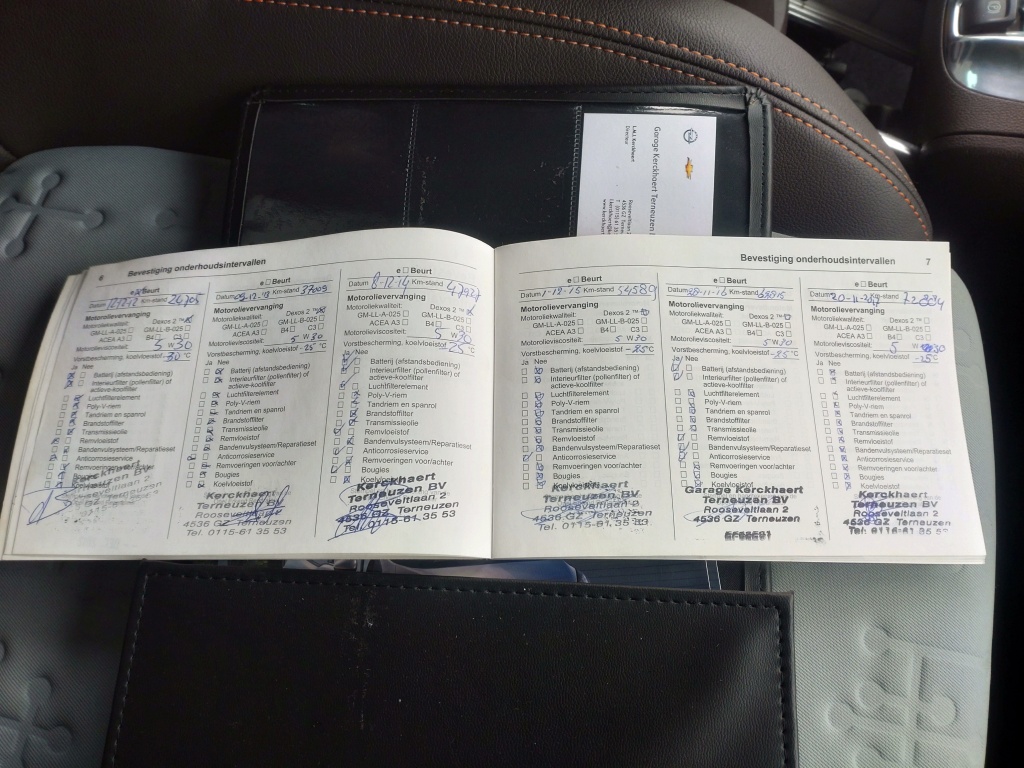 Garage Kerckhaert Terneuzen
Directeur
6 Bevestiging onderhoudsintervallen
Beurt
Datum 12-12-12 Km-stand 24705
Motorolievervanging
Motoroliekwaliteit: Dexos 2 ™
GM-LL-A-025 GM-LL-B-025
ACEA A3 B4 C3
Motorolieviscositeit: 5 W 30
Vorstbescherming, koelvloeistof -30 °C
Ja Nee
Batterij (afstandsbediening)
Interieurfilter (pollenfilter) of
actieve-koolfilter
Luchtfilterelement
Poly-V-riem
Tandriem en spanrol
Brandstoffilter
Transmissieolie
Remvloeistof
Bandenvulsysteem/Reparatieset
Anticorrosieservice
Remvoeringen voor/achter
Bougies
Kerckhaert
Terneuzen BV
Rooseveltlaan 2
e Beurt
Km-stand 37009
Motorolievervanging
Motoroliekwaliteit: Dexos 2 ™
GM-LL-A-025 GM-LL-B-025
ACEA A3 B4 C3
Motorolieviscositeit: 5 W 30
Vorstbescherming, koelvloeistof -25 °C
Ja Nee
Batterij (afstandsbediening)
Interieurfilter (pollenfilter) of
actieve-koolfilter
Luchtfilterelement
Poly-V-riem
Tandriem en spanrol
Brandstoffilter
Transmissieolie
Remvloeistof
Bandenvulsysteem/Reparatieset
Anticorrosieservice
Remvoeringen voor/achter
Bougies
Koelvloeistof
Kerckhaert
Terneuzen BV
Rooseveltlaan 2
4536 GZ Terneuzen
Tel. 0115-61 35 53
e Beurt
Datum 8-12-14 Km-stand 47927
Motorolievervanging
Motoroliekwaliteit: Dexos 2 ™
GM-LL-A-025 GM-LL-B-025
ACEA A3 B4 C3
Motorolieviscositeit: 5 W 30
Vorstbescherming, koelvloeistof -25 °C
Ja Nee
Batterij (afstandsbediening)
Interieurfilter (pollenfilter) of
actieve-koolfilter
Luchtfilterelement
Poly-V-riem
Tandriem en spanrol
Brandstoffilter
Transmissieolie
Remvloeistof
Bandenvulsysteem/Reparatieset
Anticorrosieservice
Remvoeringen voor/achter
Bougies
Koelvloeistof
Kerckhaert
Terneuzen BV
Rooseveltlaan 2
4536 GZ Terneuzen
Tel. 0115-61 35 53
Bevestiging onderhoudsintervallen 7
e Beurt
Datum 1-12-15 Km-stand 54589
Motorolievervanging
Motoroliekwaliteit: Dexos 2 ™
GM-LL-A-025 GM-LL-B-025
ACEA A3 B4 C3
Motorolieviscositeit: 5 W 30
Vorstbescherming, koelvloeistof -25 °C
Ja Nee
Batterij (afstandsbediening)
Interieurfilter (pollenfilter) of
actieve-koolfilter
Luchtfilterelement
Poly-V-riem
Tandriem en spanrol
Brandstoffilter
Transmissieolie
Remvloeistof
Bandenvulsysteem/Reparatieset
Anticorrosieservice
Remvoeringen voor/achter
Bougies
Koelvloeistof
Kerckhaert
Terneuzen BV
Rooseveltlaan 2
4536 GZ Terneuzen
Tel. 0115-61 35 53
e Beurt
Datum 28-11-16 Km-stand
Motorolievervanging
Motoroliekwaliteit: Dexos 2 ™
GM-LL-A-025 GM-LL-B-025
ACEA A3 B4 C3
Motorolieviscositeit: 5 W 30
Vorstbescherming, koelvloeistof -25 °C
Ja Nee
Batterij (afstandsbediening)
Interieurfilter (pollenfilter) of
actieve-koolfilter
Luchtfilterelement
Poly-V-riem
Tandriem en spanrol
Brandstoffilter
Transmissieolie
Remvloeistof
Bandenvulsysteem/Reparatieset
Anticorrosieservice
Remvoeringen voor/achter
Bougies
Garage Kerckhaert
Terneuzen BV
Rooseveltlaan 2
4536 GZ Terneuzen
e Beurt
Datum Km-stand
Motorolievervanging
Motoroliekwaliteit: Dexos 2 ™
GM-LL-A-025 GM-LL-B-025
ACEA A3 B4 C3
Motorolieviscositeit: 5 W 30
Vorstbescherming, koelvloeistof -25 °C
Ja Nee
Batterij (afstandsbediening)
Interieurfilter (pollenfilter) of
actieve-koolfilter
Luchtfilterelement
Poly-V-riem
Tandriem en spanrol
Brandstoffilter
Transmissieolie
Remvloeistof
Bandenvulsysteem/Reparatieset
Anticorrosieservice
Remvoeringen voor/achter
Bougies
Koelvloeistof
Kerckhaert
Terneuzen BV
Rooseveltlaan 2
4536 GZ Terneuzen